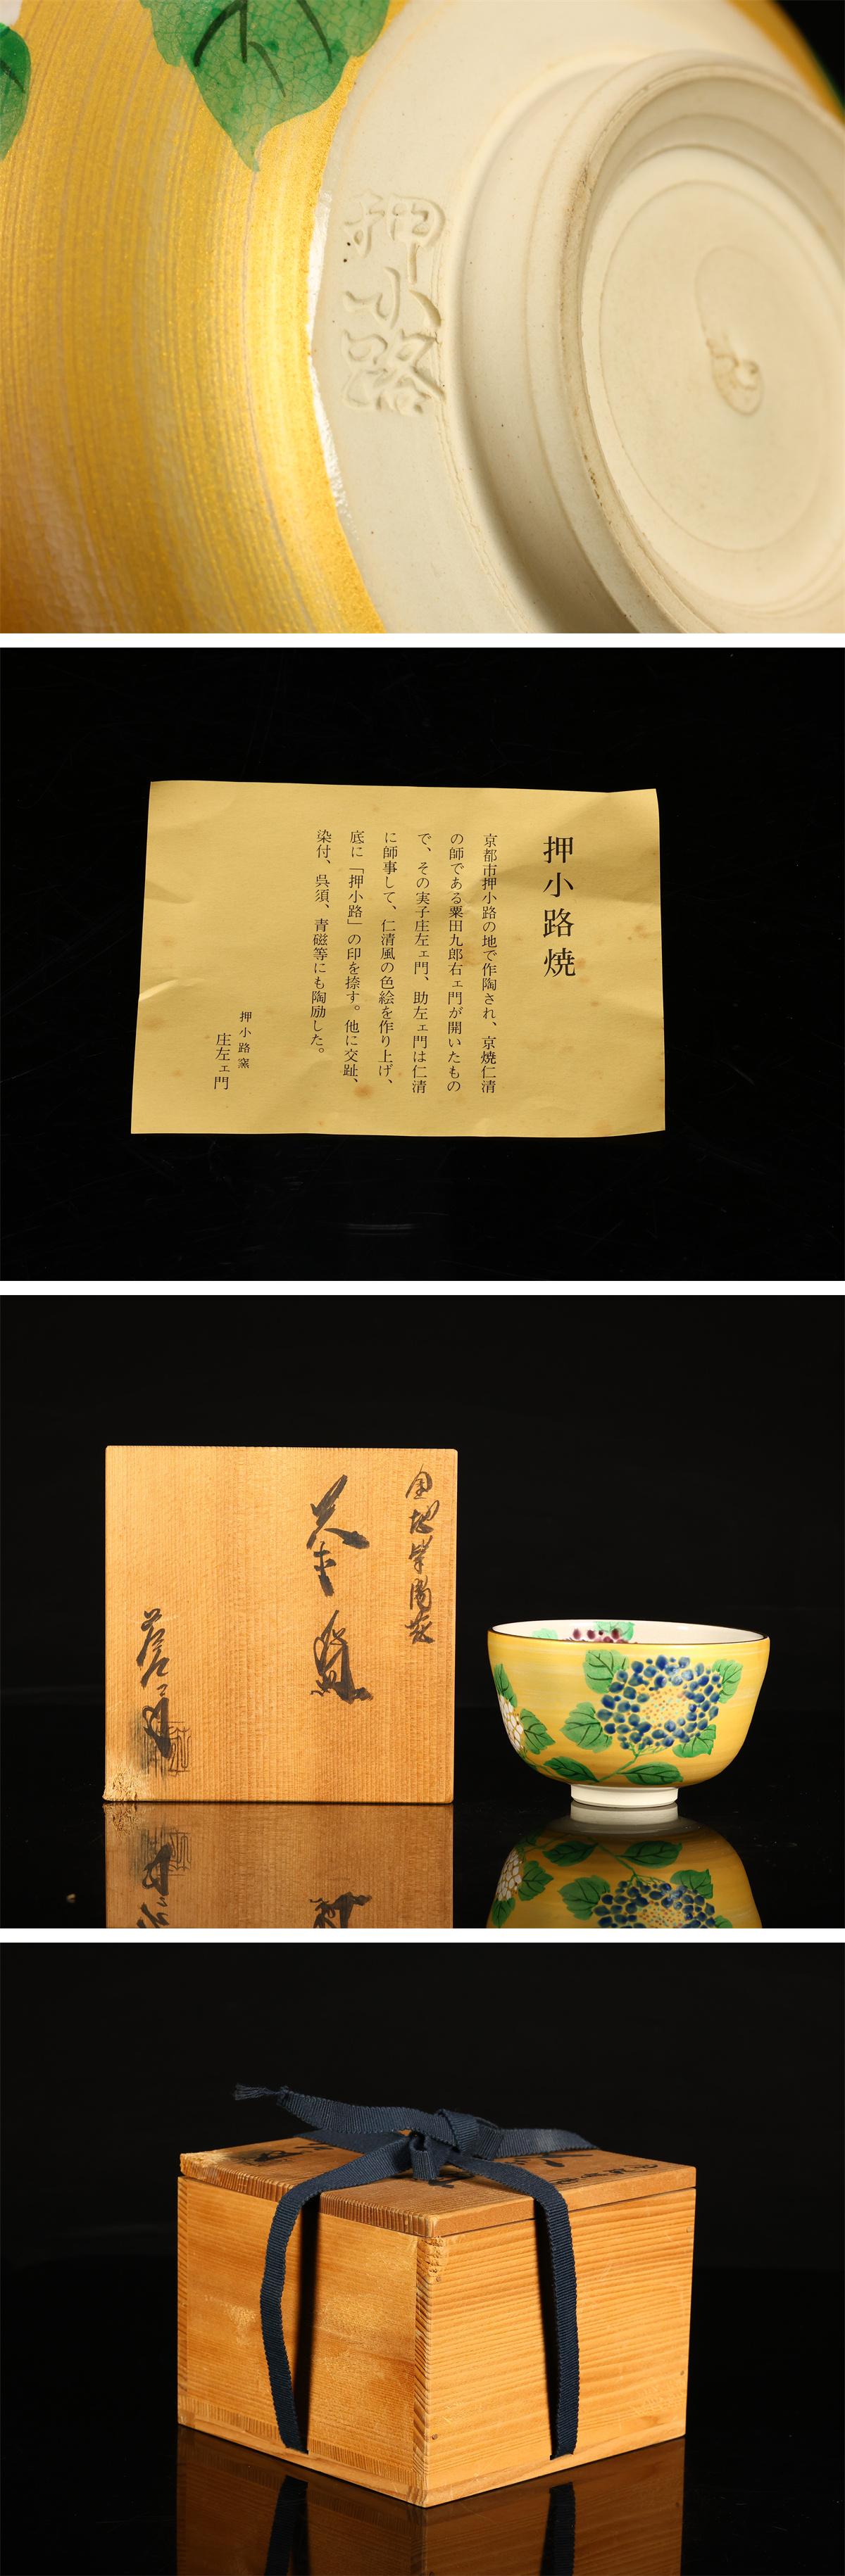 押小路
押小路焼
京都市押小路の地で作陶され、京焼仁清
の師である粟田九郎右ェ門が開いたもの
で、その実子庄左ェ門、助左ェ門は仁清
に師事して、仁清風の色絵を作り上げ、
底に「押小路」の印を捺す。他に交趾、
染付、呉須、青磁等にも陶励した。
押小路窯
庄左ェ門
金地紫陽花
茶碗